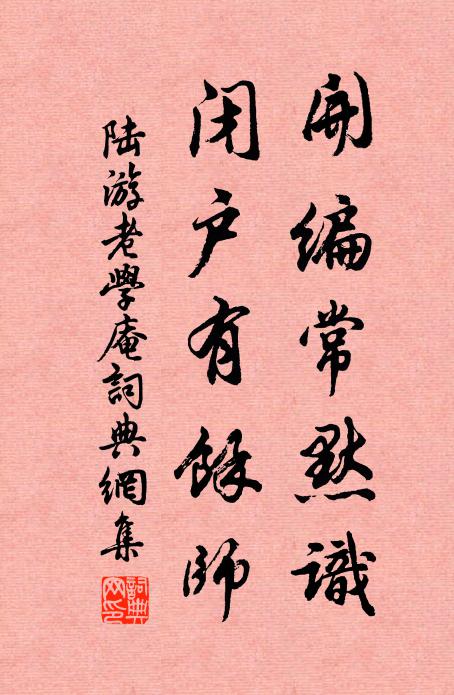 開編常默識
閉戶有餘師
陸游老學庵詞典網集
詞典網印